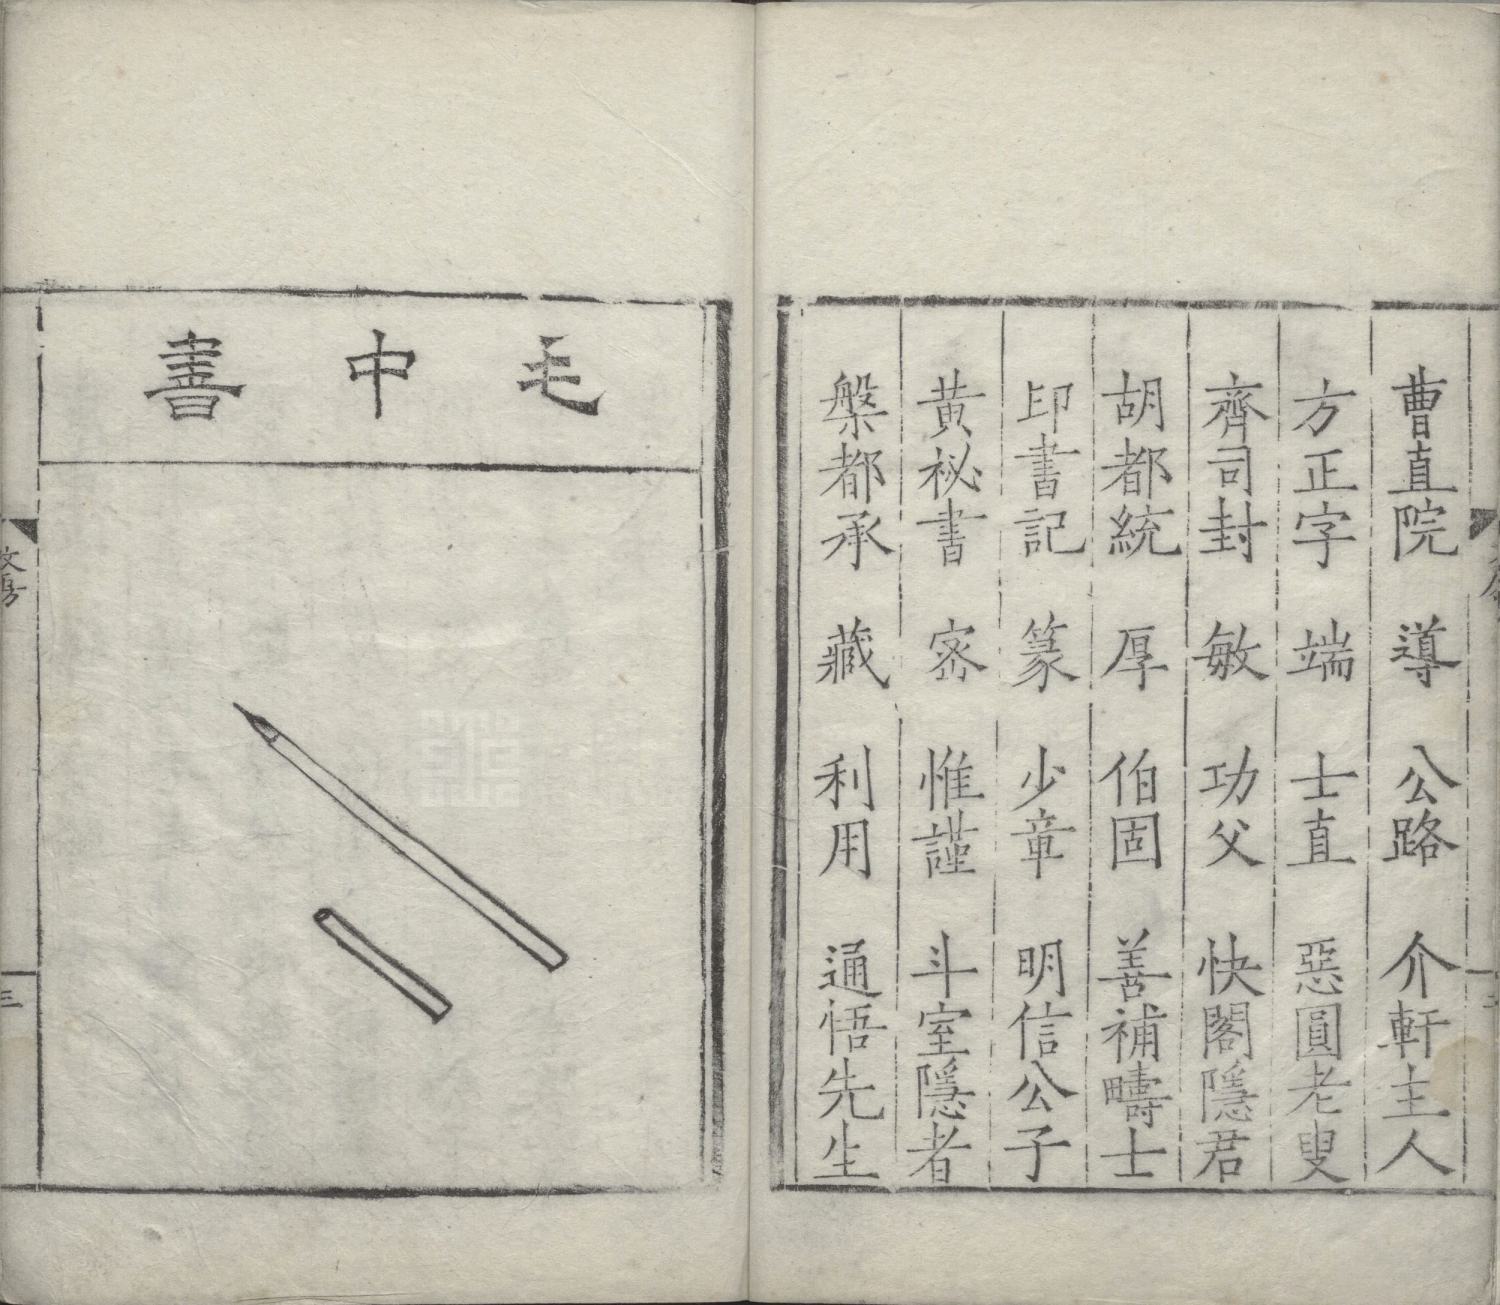 曹直院 導 公路 介軒主人
方正字 端 士直 惡圓老叟
齊司封 敏 功父 快閣隱君
胡都統 厚 伯固 善補疇士
印書記 篆 少章 明信公子
黃祕書 密 惟謹 斗室隱者
槃都承 藏 利用 通悟先生
毛中書
文房
三